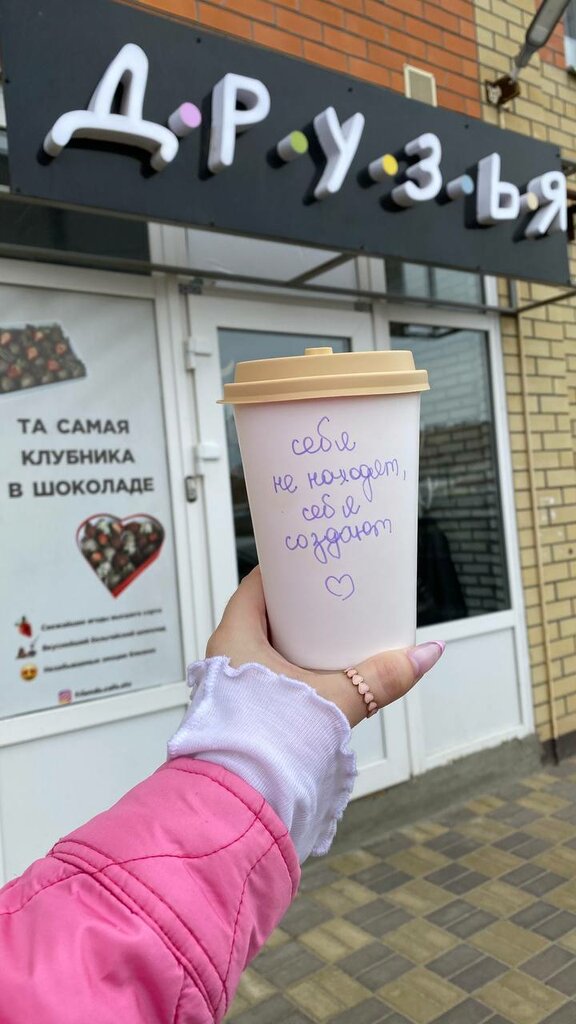 ДРУЗЬЯ
ТА САМАЯ
КЛУБНИКА
В ШОКОЛАДЕ
себя
не находят,
себя
создают